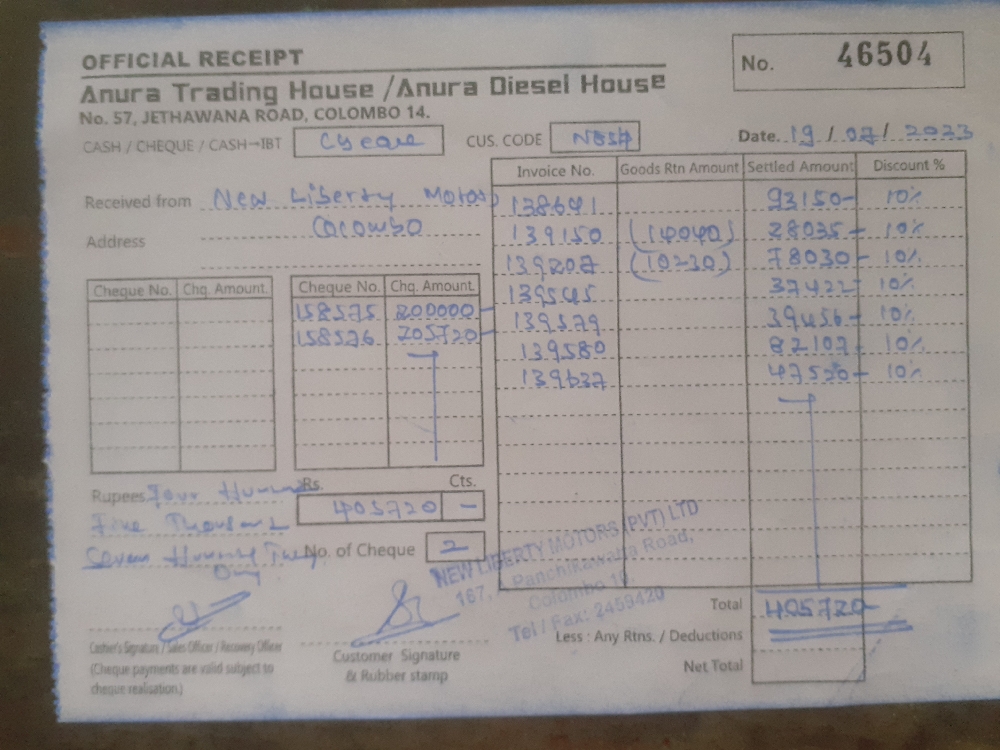 OFFICIAL RECEIPT
No. 46504
Anura Trading House /Anura Diesel House
No. 57, JETHAWANA ROAD, COLOMBO 14.
CASH / CHEQUE / CASH→IBT Cheque CUS. CODE Date. 19 / 07 / 2023
Received from New Liberty Motors
Address Colombo
Invoice No. Goods Rtn Amount Settled Amount Discount %
138641 93150- 10%
139150 (14040) 28035- 10%
139207 (10230) 78030- 10%
139545 37422- 10%
139579 39456- 10%
139580 82107- 10%
139637 47520- 10%
Cheque No. Chq. Amount. Cheque No. Chq. Amount.
158575 200000-
158576 205720-
Rupees Four
Five Thousand
Seven
Rs. Cts.
405720 -
No. of Cheque 2
NEW LIBERTY MOTORS (PVT) LTD
167, Panchikawatta Road,
Colombo 10.
Tel / Fax: 2459420
Total 405720-
Less : Any Rtns. / Deductions
Net Total
Cashier's Signature / Sales Officer / Recovery Officer
(Cheque payments are valid subject to
cheque realisation.)
Customer Signature
& Rubber stamp